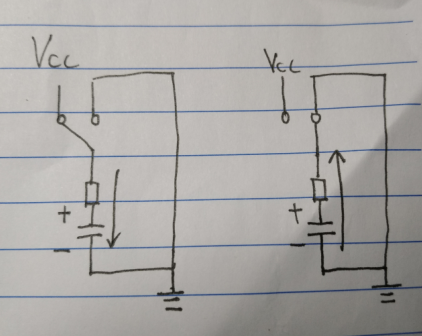 Vcc Vcc
+ +
- -